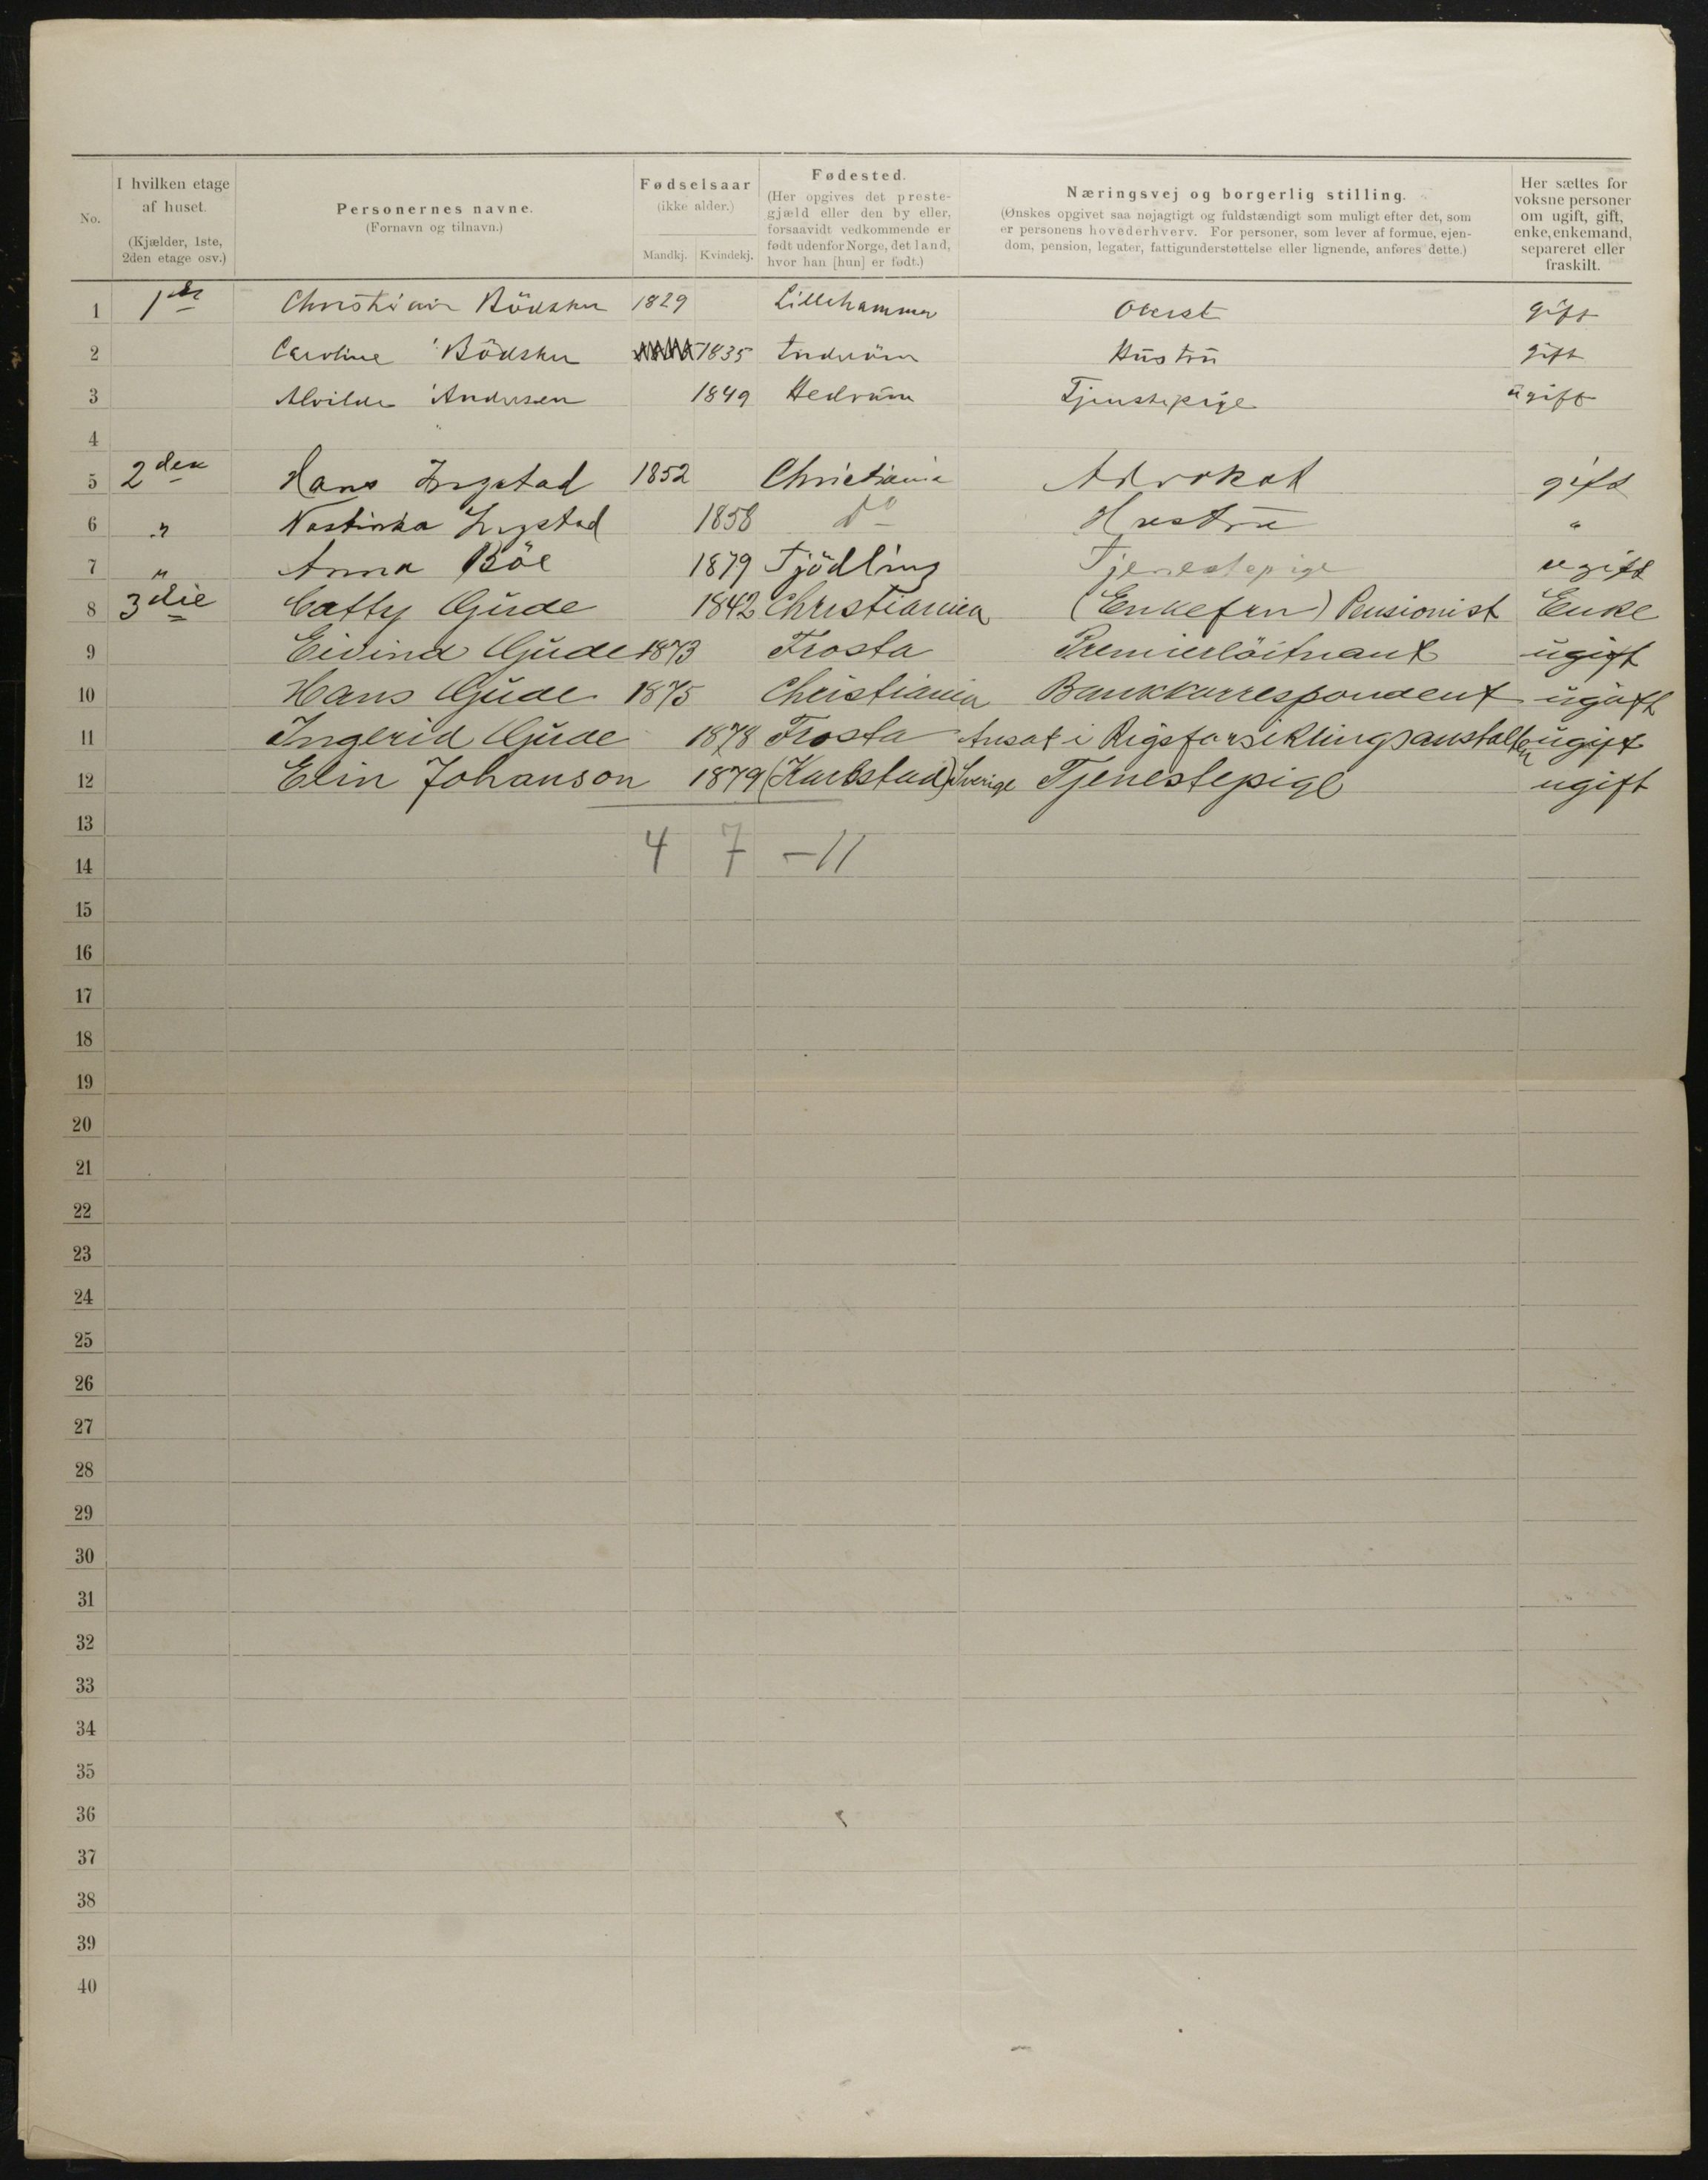 No. | I hvilken etage af huset. (Kjælder, 1ste, 2den etage osv.) | Personernes navne. (Fornavn og tilnavn.) | Fødselsaar (ikke alder.) Mandkj. Kvindekj. | Fødested. (Her opgives det prestegjæld eller den by eller, forsaavidt vedkommende er født udenfor Norge, det land, hvor han [hun] er født.) | Næringsvej og borgerlig stilling. (Ønskes opgivet saa nøjagtigt og fuldstændigt som muligt efter det, som er personens hovederhverv. For personer, som lever af formue, ejendom, pension, legater, fattigunderstøttelse eller lignende, anføres dette.) | Her sættes for voksne personer om ugift, gift, enke, enkemand, separeret eller fraskilt.
1 1ste Christian 1829 Lillehammer Oberst gift
2 Caroline 1835 Hustrü gift
3 Alvilde Andersen 1849 Hedrüm Tjenstepige ügift
4
5 2den Hans Ingstad 1852 Christiania Advokat gift
6 " Nastinka Ingstad 1858 do Hustrü "
7 " Anna Böe 1879 Tjödling Tjenestepige ugift
8 3die Catty Güde 1842 Christiania (Enkefru) Pensionist Enke
9 Eivind Güde 1873 Frosta Premierlöitnant ügift
10 Hans Güde 1875 Christiania Bankkorrespondent ügift
11 Ingerid Güde 1878 Frosta Ansat i Rigsforsikringsanstalten ügift
12 Elin Johanson 1879 (Karlstad) Sverige Tjenestepige ugift
13
4 7 – 11
14
15
16
17
18
19
20
21
22
23
24
25
26
27
28
29
30
31
32
33
34
35
36
37
38
39
40